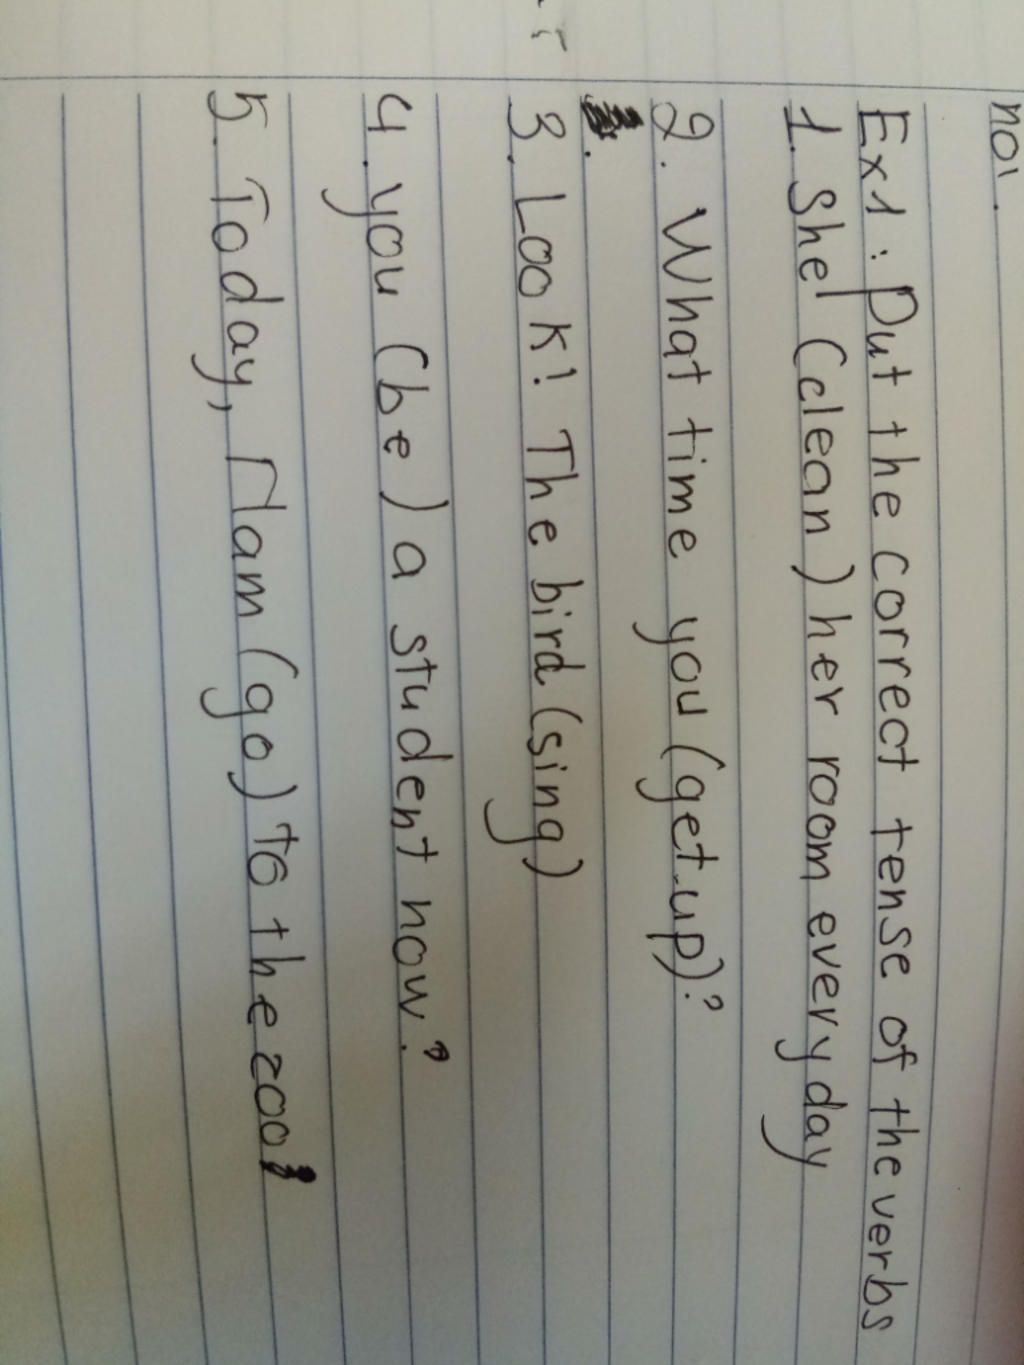 nói.
Ex1: Put the correct tense of the verbs
1. She (clean) her room every day
2. What time you (get up)?
3. Look! The bird (sing)
4. you (be) a student now?
5. Today, Nam (go) to the zoo.